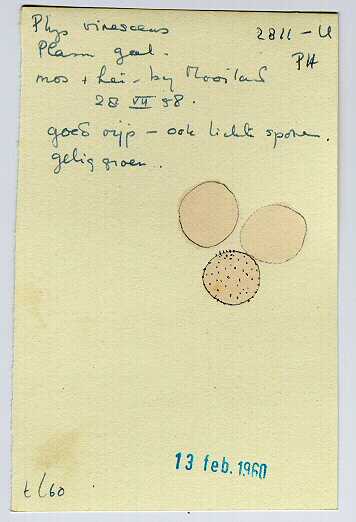 Phys virescens 2811 - U
Plasm geel. PH
mos + hei - by Mooiland
28 VII 58.
goed rijp - ook lichte sporen.
gelig groen..
13 feb. 1960
t/60